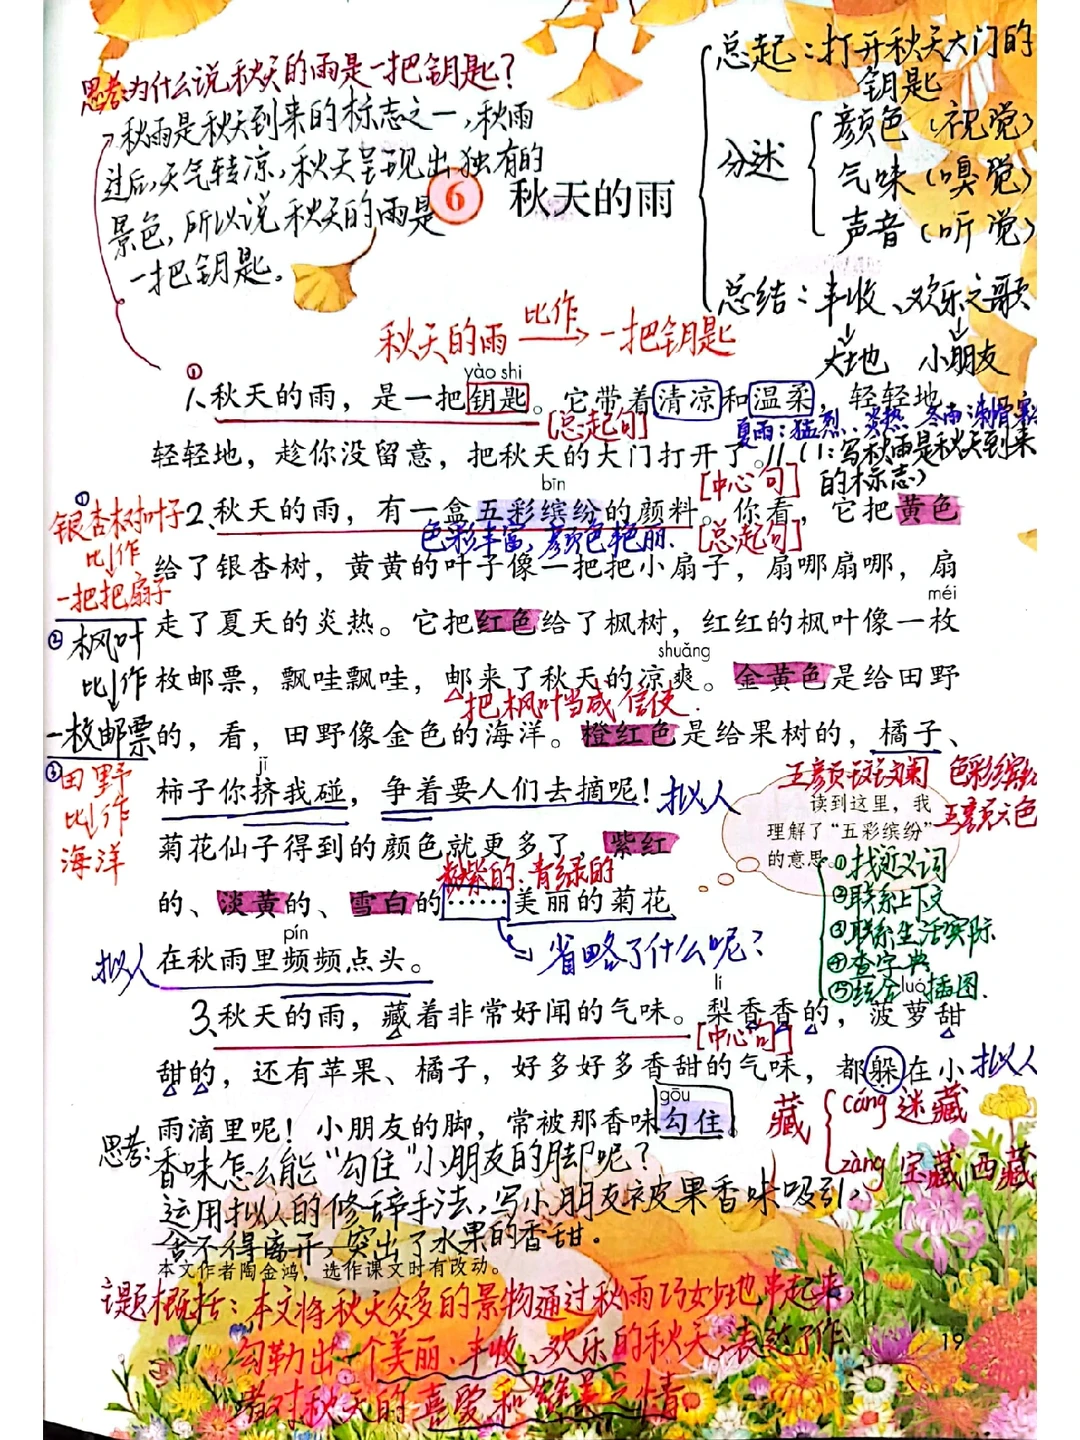 思考:为什么说秋天的雨是一把钥匙?
秋雨是秋天到来的标志之一,秋雨
过后,天气转凉,秋天呈现出独有的
景色,所以说秋天的雨是
一把钥匙。
总起:打开秋天大门的
钥匙
分述
颜色(视觉)
气味(嗅觉)
声音(听觉)
总结:丰收、欢乐之歌
大地 小朋友
6 秋天的雨
秋天的雨 比作 一把钥匙
①
yào shi
1、秋天的雨,是一把钥匙。它带着清凉和温柔,轻轻地,
[总起句]
夏雨:猛烈、炎热 冬雨:刺骨寒冷
轻轻地,趁你没留意,把秋天的大门打开了。//(1:写秋雨是秋天到来
的标志)
[中心句]
bīn
2、秋天的雨,有一盒五彩缤纷的颜料。你看,它把黄色
色彩丰富,颜色艳丽.
[总起句]
给了银杏树,黄黄的叶子像一把把小扇子,扇哪扇哪,扇
méi
走了夏天的炎热。它把红色给了枫树,红红的枫叶像一枚
shuǎng
枚邮票,飘哇飘哇,邮来了秋天的凉爽。金黄色是给田野
把枫叶当成信使.
的,看,田野像金色的海洋。橙红色是给果树的,橘子、
jǐ
柿子你挤我碰,争着要人们去摘呢!拟人
菊花仙子得到的颜色就更多了,紫红
的、淡黄的、雪白的……美丽的菊花
紫的.青绿的
省略了什么呢?
pín
拟人 在秋雨里频频点头。
①
银杏树叶子
比作
一把把扇子
②枫叶
比作
一枚邮票
③田野
比作
海洋
五颜六色
读到这里,我
理解了“五彩缤纷”
的意思。
①找近义词
②联系上下文
③联系生活实际
④查字典
⑤结合插图.
lí
luó
3、秋天的雨,藏着非常好闻的气味。梨香香的,菠萝甜
[中心句]
甜的,还有苹果、橘子,好多好多香甜的气味,都躲在小 拟人
gōu
雨滴里呢!小朋友的脚,常被那香味勾住。
藏
cáng 迷藏
zàng 宝藏 西藏
思考:香味怎么能“勾住”小朋友的脚呢?
运用拟人的修辞手法,写小朋友被果香味吸引,
舍不得离开,突出了水果的香甜。
本文作者陶金鸿,选作课文时有改动。
主题概括:本文将秋天众多的景物通过秋雨巧妙地串起来,
勾勒出一个美丽、丰收、欢乐的秋天,表达了作
者对秋天的喜爱和赞美之情。
19